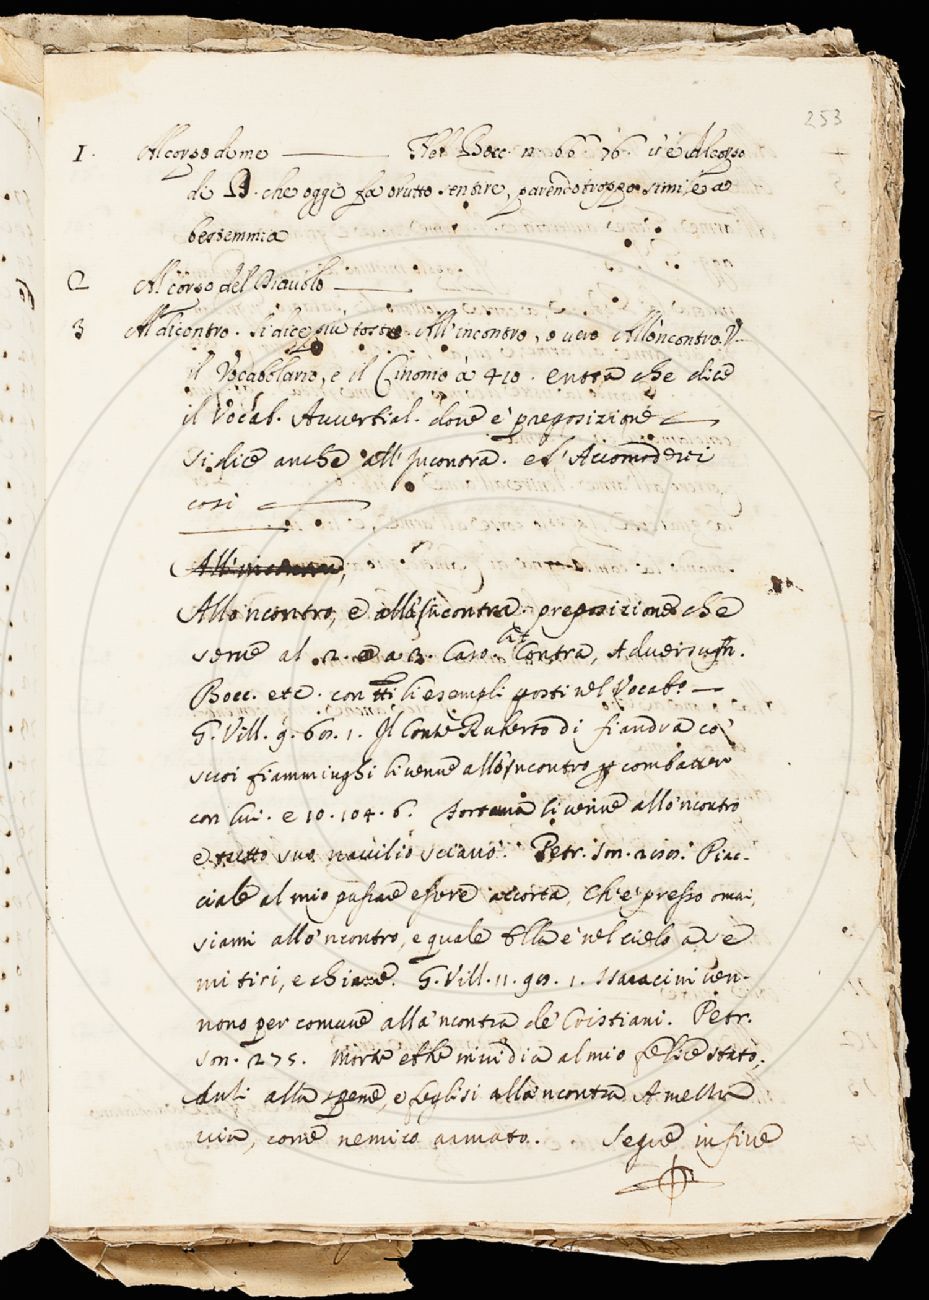 253
1. Al corpo di me — Bocc. n. 66 76. v'è Al corpo
di che oggi fa brutto sentire, parendo troppo simile a
bestemmia
2 Al corpo del Diavolo —
3 Al dicontro. si dice più tosto All'incontro, o vero All'oncontro. V—
il Vocabolario, e il Cinonio a 410. entra che dice
il Vocab. Avverbial. dove è preposizione —
si dice anche all'Incontra. e l'Accomoderei
così —
All'
Allo'ncontro, e all'Incontra preposizione che
serve al 2. e a 3. Caso. Lat. Contra, Adversus.
Bocc. etc. con tti li esempli posti nel Vocabo —
G. Vill. 9. 1. Il Conte Ruberto di fiandra co'
suoi fiamminghi li venne all'Incontro p combatter
con lui. e 10. 104. 6. li venne allo'ncontro
e tutto suo navilio Petr. Son. Piac-
ciale al mio passare essere accorta, Ch'è presso omai,
siami allo'ncontro, e quale Ella è nel cielo a se
mi tiri, e chiame. G. Vill. 11. 1. Isaracini ven-
nono per comune alla'ncontra de' Cristiani. Petr.
Son. 275. Morte ebbe invidia al mio felice stato,
Anzi alla speme, e feglisi alla'ncontra A mezza
via, come nemico armato. Segue in fine